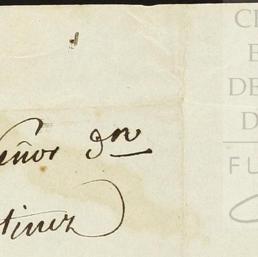 eñor Dn
tinez
CE
E
DE
D
FU